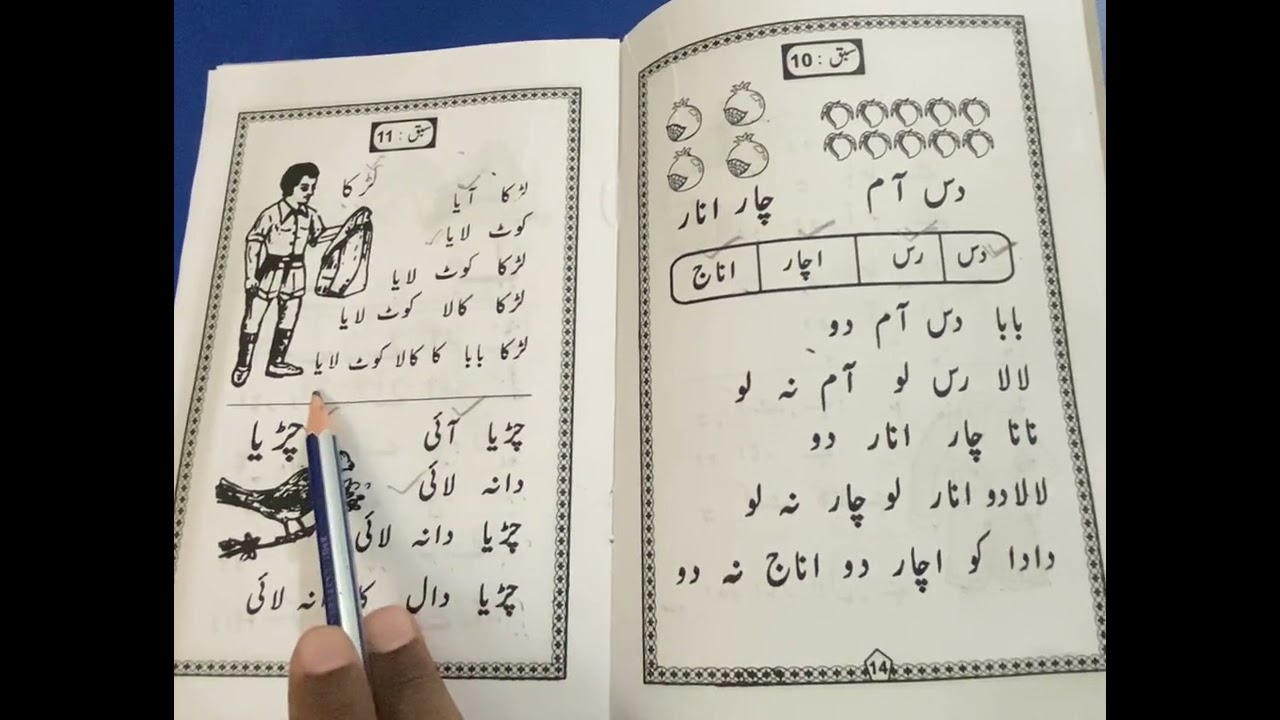 سبق : 10
دس آم
چار انار
دس رس اچار اناج
بابا دس آم دو
لالا رس لو آم نہ لو
نانا چار انار دو
لالا دو انار لو چار نہ لو
دادا کو اچار دو اناج نہ دو
14
سبق : 11
لڑکا
لڑکا آیا
کوٹ لایا
لڑکا کوٹ لایا
لڑکا کالا کوٹ لایا
لڑکا بابا کا کالا کوٹ لایا
چڑیا آئی
چڑیا
دانہ لائی
چڑیا دانہ لائی
چڑیا دال کا دانہ لائی